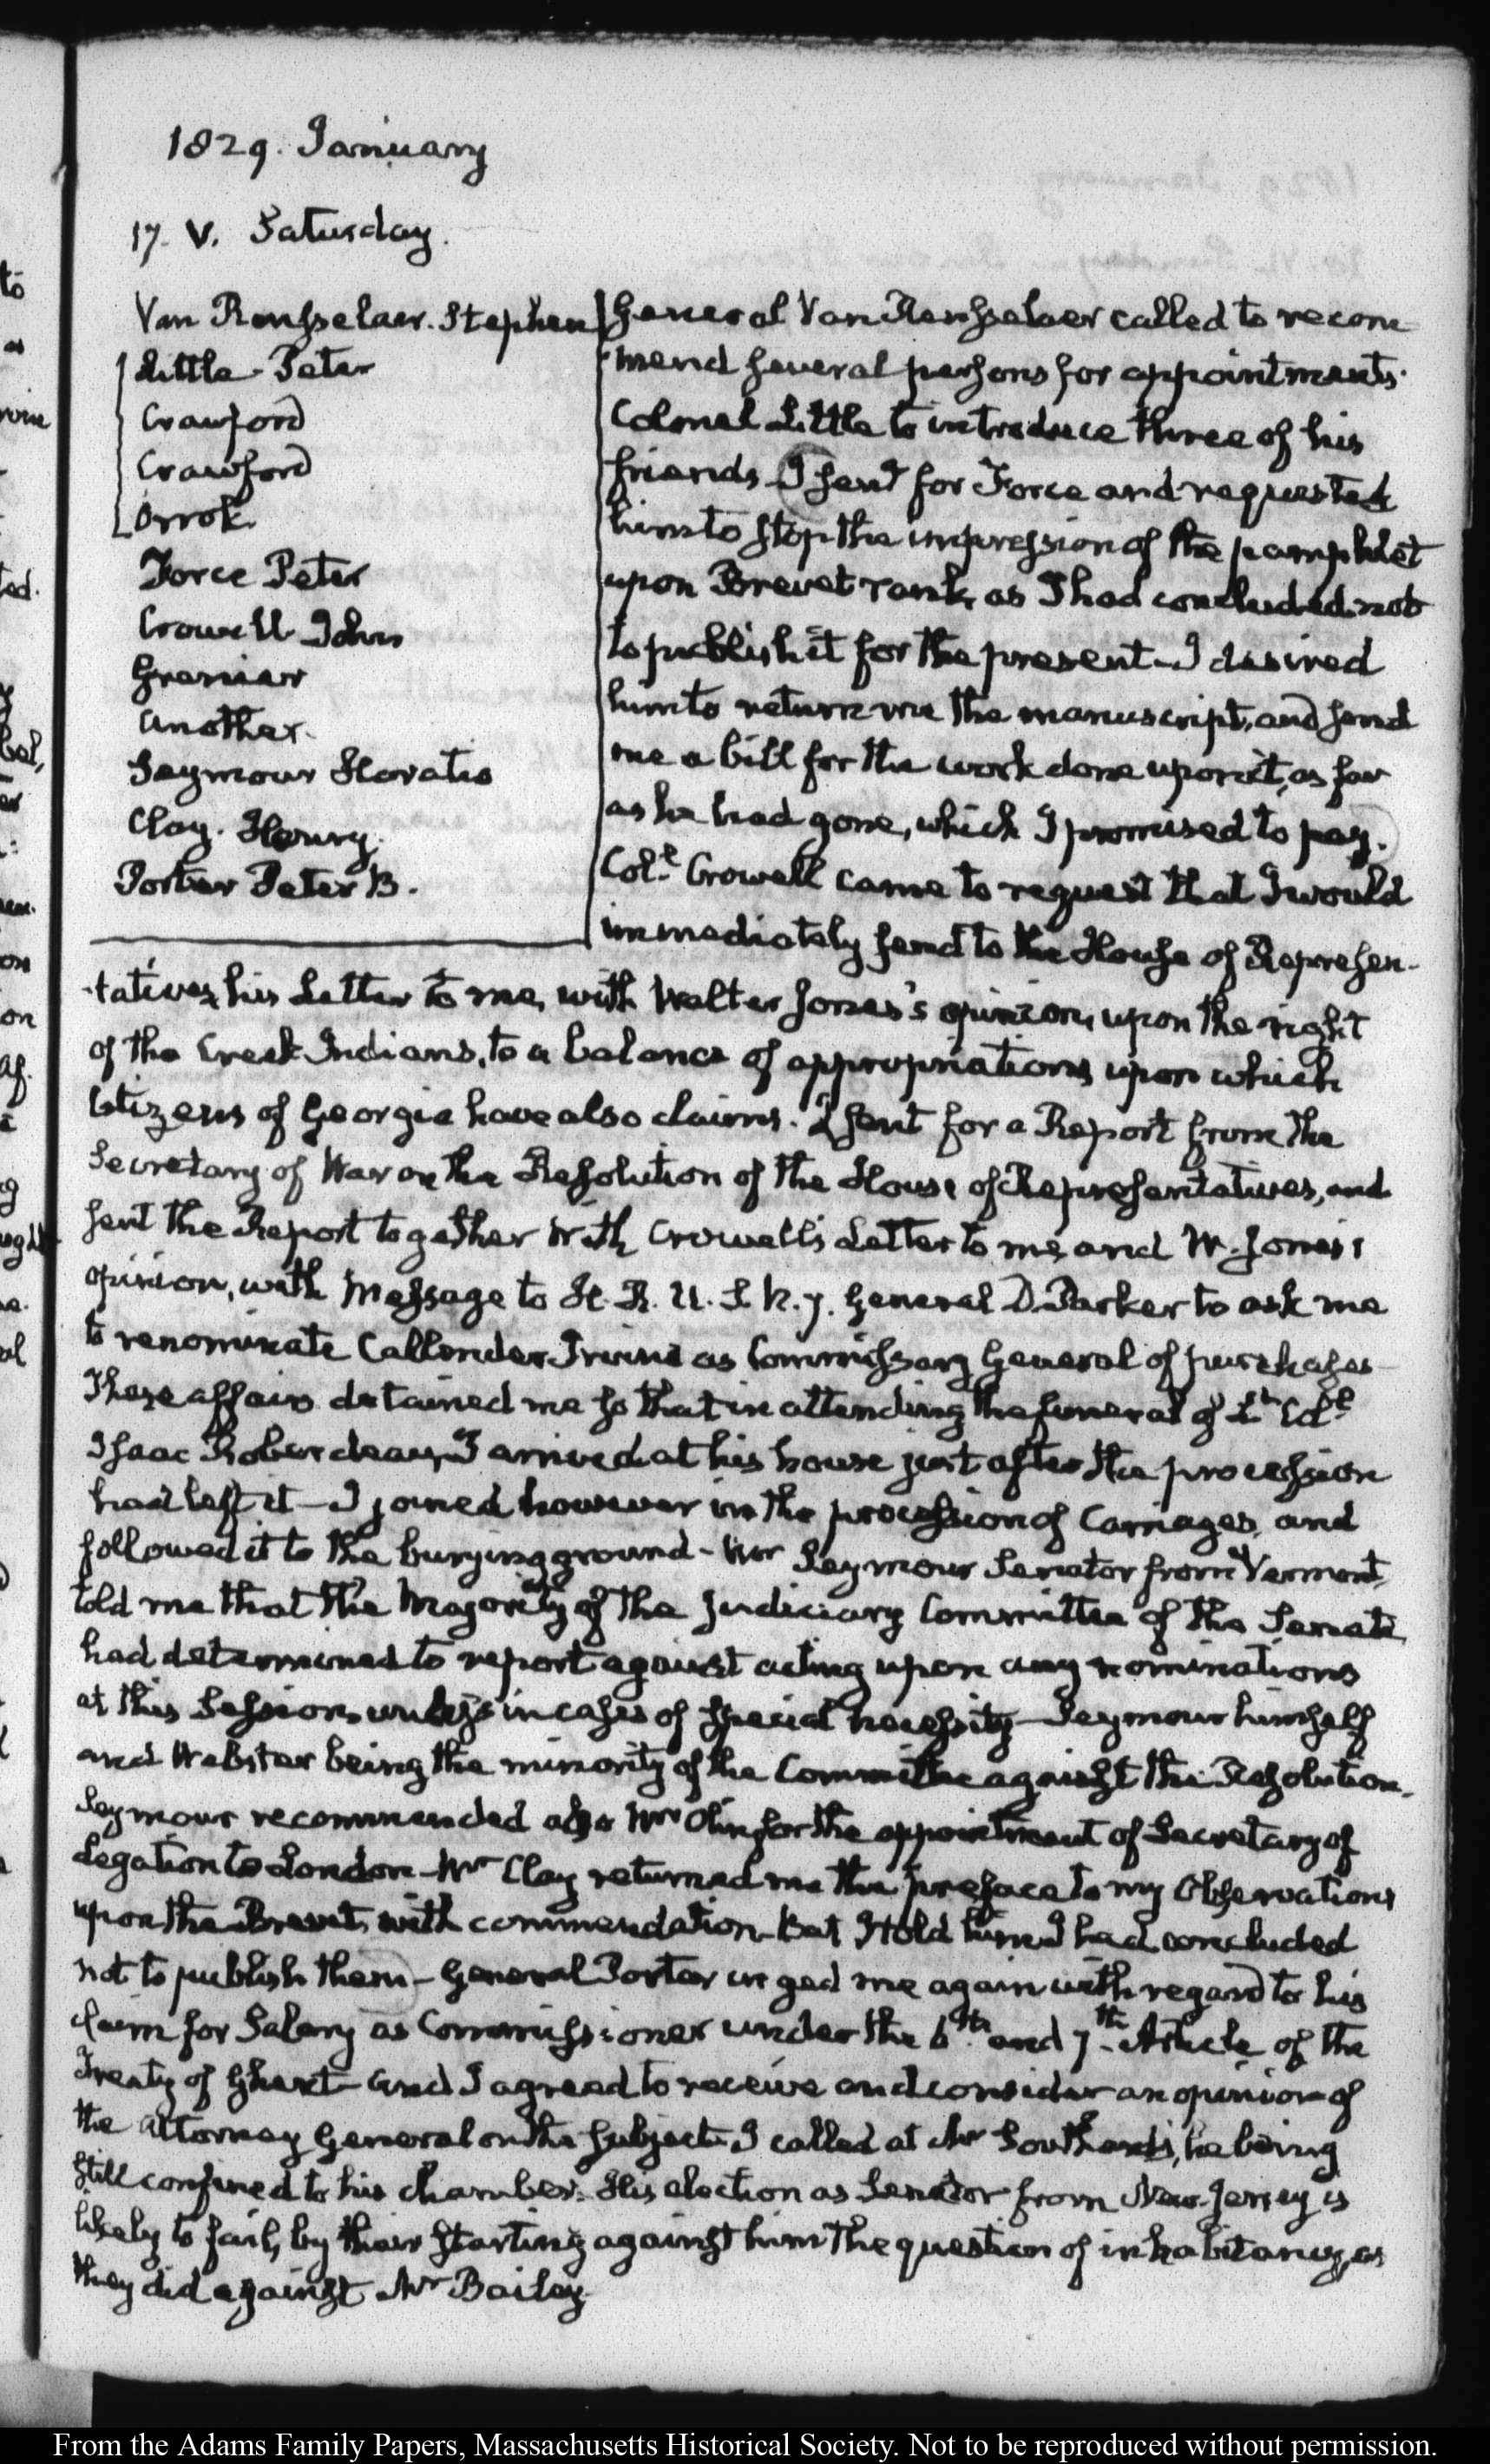 1829. January
17. V. Saturday.
Van Rensselaer. Stephen
Little Peter
Crawford
Crawford
Orrok.
Force Peter
Crowell John
Grenier
Another.
Seymour Horatio
Clay. Henry.
Porter Peter B.
General Van Rensselaer called to recom
mend several persons for appointments.
Colonel Little to introduce three of his
friends I sent for Force and requested
him to stop the impression of the pamphlet
upon Brevet rank, as I had concluded not
to publish it for the present—I desired
him to return me the manuscript, and send
me a bill for the work done upon it, as far
as he had gone, which I promised to pay.
Coll. Crowell came to request that I would
immediately send to the House of Represen-
tatives, his Letter to me, with Walter Jones's opinion, upon the right
of the Creek Indians, to a balance of appropriations upon which
Citizens of Georgia have also claims. I sent for a Report from the
Secretary of War on the Resolution of the House of Representatives, and
sent the Report together with Crowell's Letter to me, and W. Jones's
opinion, with Message to H. R. U. S. N. 7. General D Parker to ask me
to renominate Callender Irvine as Commissary General of purchases—
These affairs detained me so that in attending the funeral of Lt. Coll.
Isaac Roberdeau, I arrived at his house just after the procession
had left it—I joined however in the procession of Carriages, and
followed it to the burying ground—Mr Seymour Senator from Vermont,
told me that the Majority of the Judiciary Committee of the Senate,
had determined to report against acting upon any nominations
at this Session, unless in cases of special necessity—Seymour himself
and Webster being the minority of the Committee against the Resolution.
Seymour recommended also Mr Olin for the appointment of Secretary of
Legation to London—Mr Clay returned me the preface to my Observations
upon the Brevet, with commendation—But I told him I had concluded
not to publish them—General Porter urged me again with regard to his
claim for Salary as Commissioner under the 6th. and 7th. Article of the
Treaty of Ghent—and I agreed to receive and consider an opinion of
the Attorney General on the subject. I called at Mr Southard's, he being
still confined to his chamber. His election as Senator from New-Jersey is
likely to fail, by their starting against him the question of inhabitancy, as
they did against Mr Bailey.
From the Adams Family Papers, Massachusetts Historical Society. Not to be reproduced without permission.